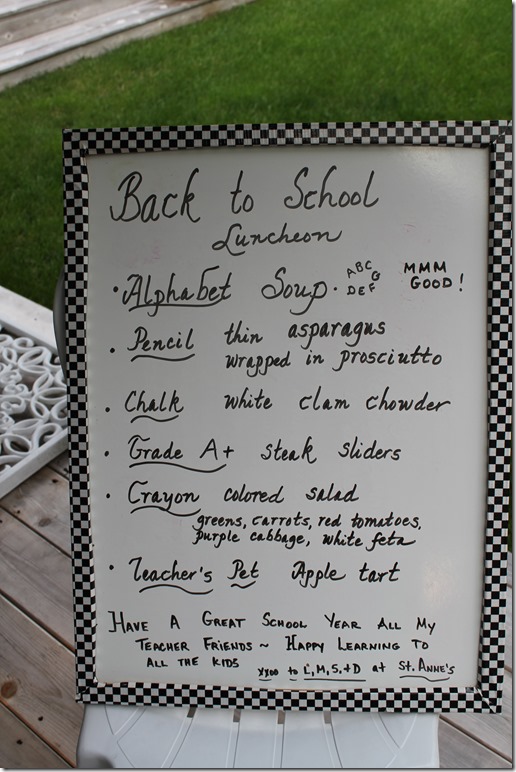 Back to School
Luncheon
• Alphabet Soup. ABCG DEF MMM GOOD!
• Pencil thin asparagus
wrapped in prosciutto
• Chalk white clam chowder
• Grade A+ steak sliders
• Crayon colored salad
greens, carrots, red tomatoes,
purple cabbage, white feta
• Teacher's Pet Apple tart
HAVE A GREAT SCHOOL YEAR ALL MY
TEACHER FRIENDS ~ HAPPY LEARNING TO
ALL THE KIDS xxoo to L, M, S, + D at ST. ANNE'S